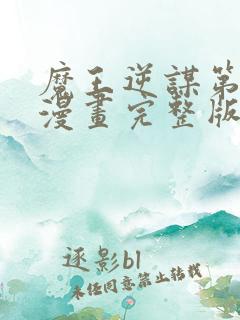 魔王逆謀第
漫畫完整版
逐影bl
未經同意禁止轉載